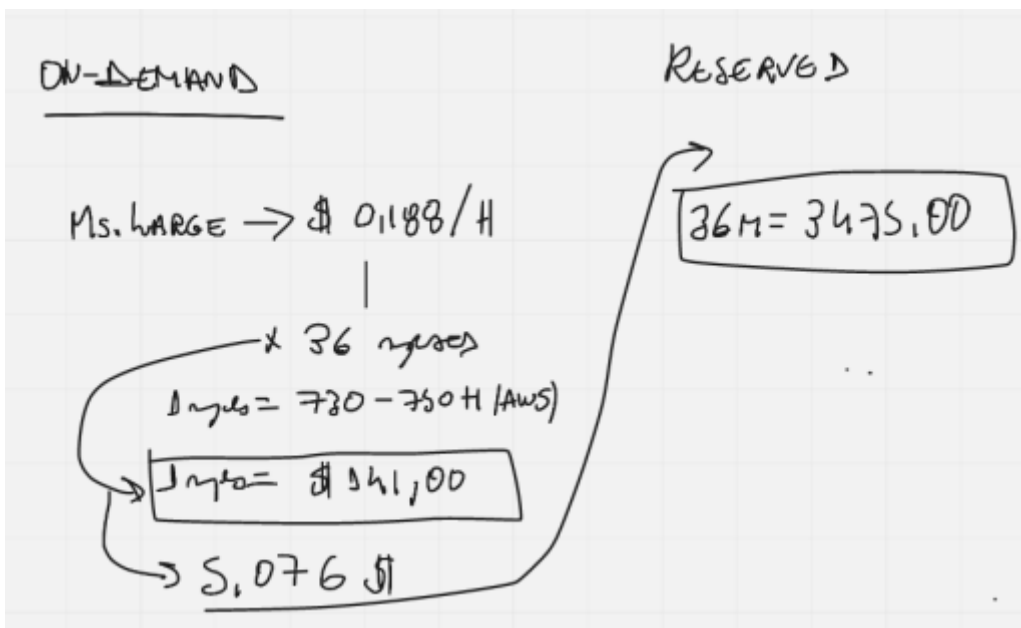 ON-DEMAND
M5.LARGE → $ 0,188/H
x 36 meses
1 mes = 730 - 750 H (AWS)
1 mes = $ 141,00
5.076 $
RESERVED
36 M = 3475,00